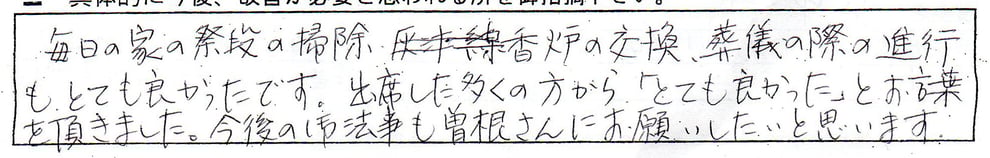 毎日の家の祭段の掃除 香炉の交換、葬儀の際の進行
もとても良かったです。出席した多くの方から「とても良かった」とお言葉
を頂きました。今後の御法事も曽根さんにお願いしたいと思います。